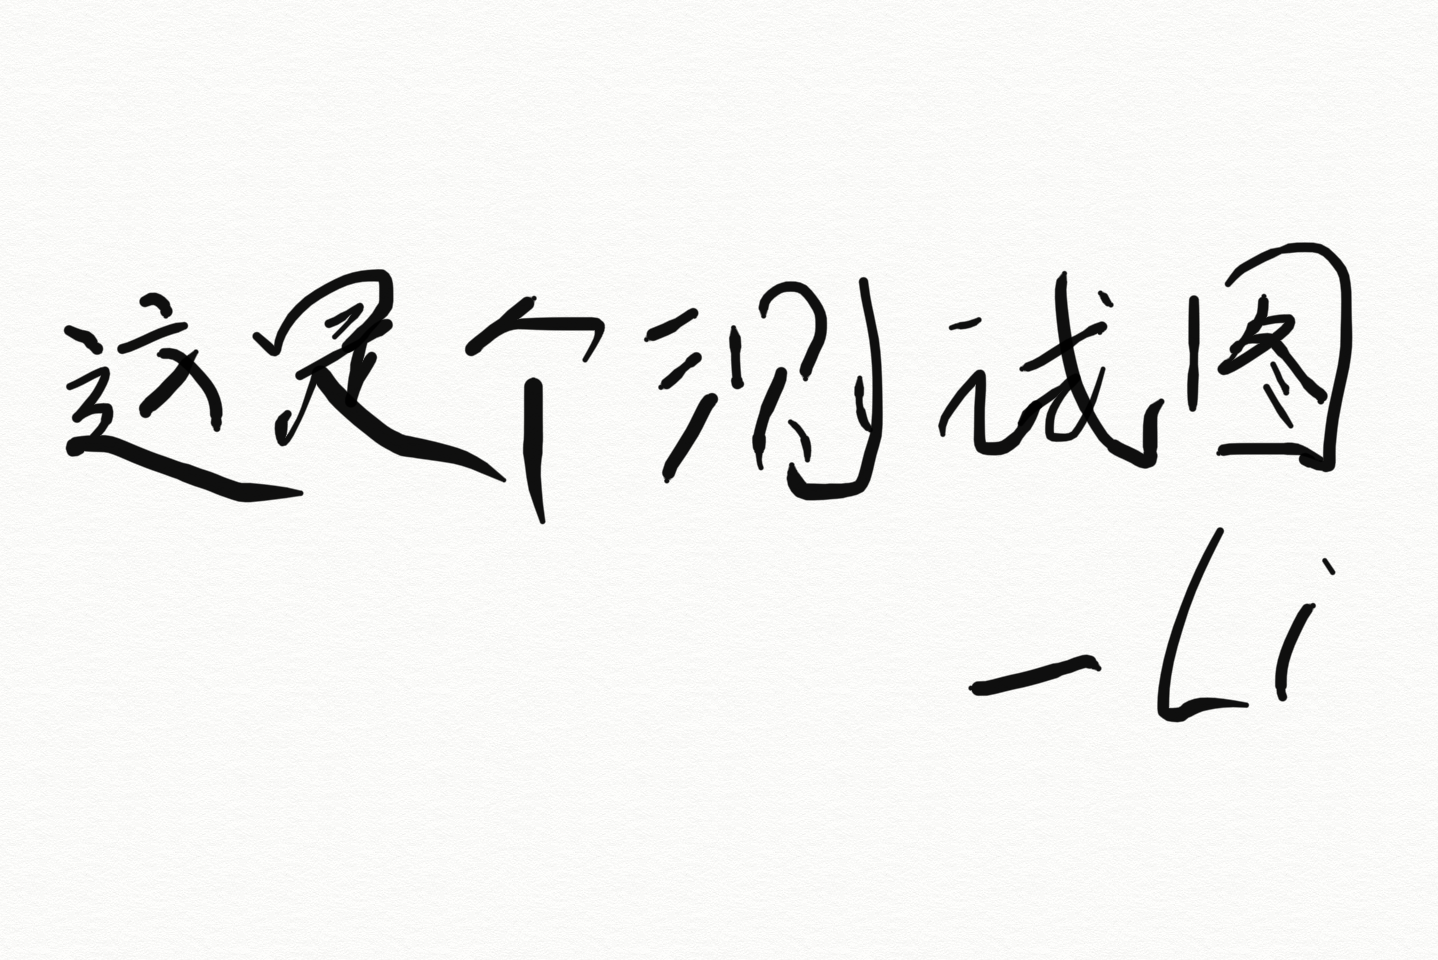 这是个测试图
-Li